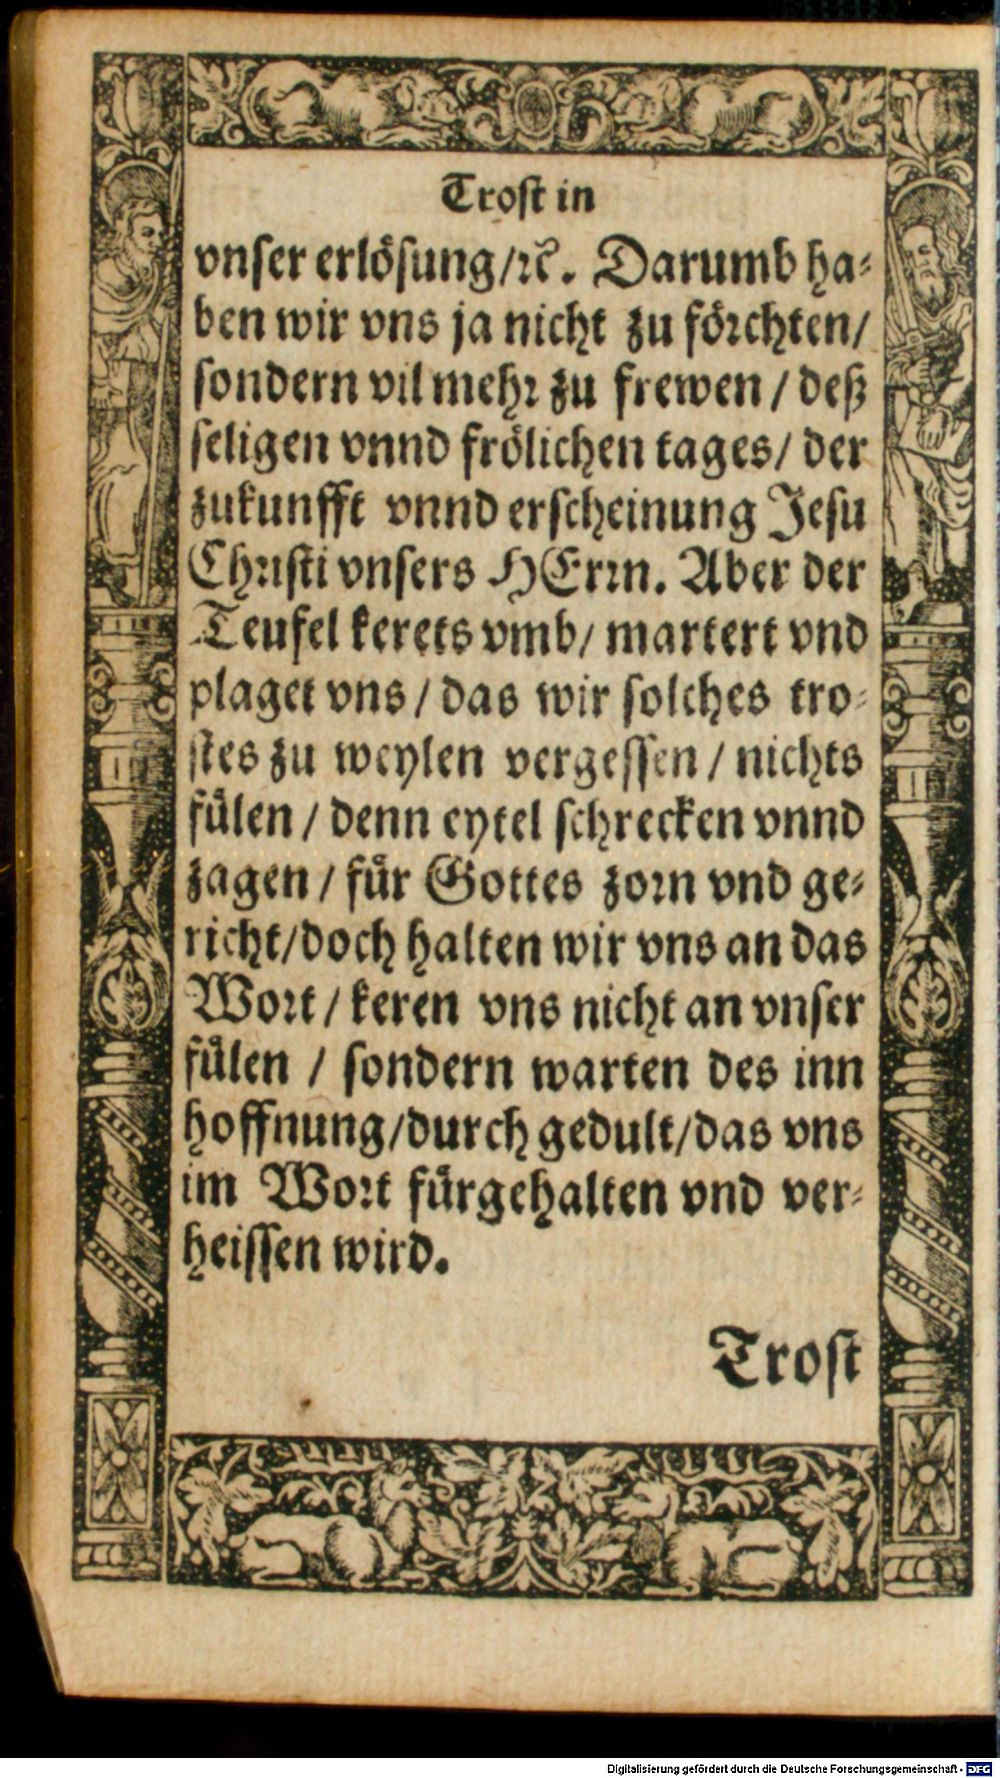 Trost in
vnser erlösung/ꝛc̃. Darumb ha⸗
ben wir vns ja nicht zu föꝛchten/
sondern vil mehꝛ zu frewen / deß
seligen vnnd frölichen tages/ der
zukunfft vnnd erscheinung Jesu
Chꝛisti vnsers HErꝛn. Aber der
Teufel kerets vmb/ martert vnd
plaget vns / das wir solches tro⸗
stes zu weylen vergessen / nichts
fülen / denn eytel schrecken vnnd
zagen / für Gottes zoꝛn vnd ge⸗
richt/doch halten wir vns an das
Woꝛt / keren vns nicht an vnser
fülen / sondern warten des inn
hoffnung/durch gedult/das vns
im Woꝛt fürgehalten vnd ver⸗
heissen wird.
Trost
Digitalisierung gefördert durch die Deutsche Forschungsgemeinschaft - DFG